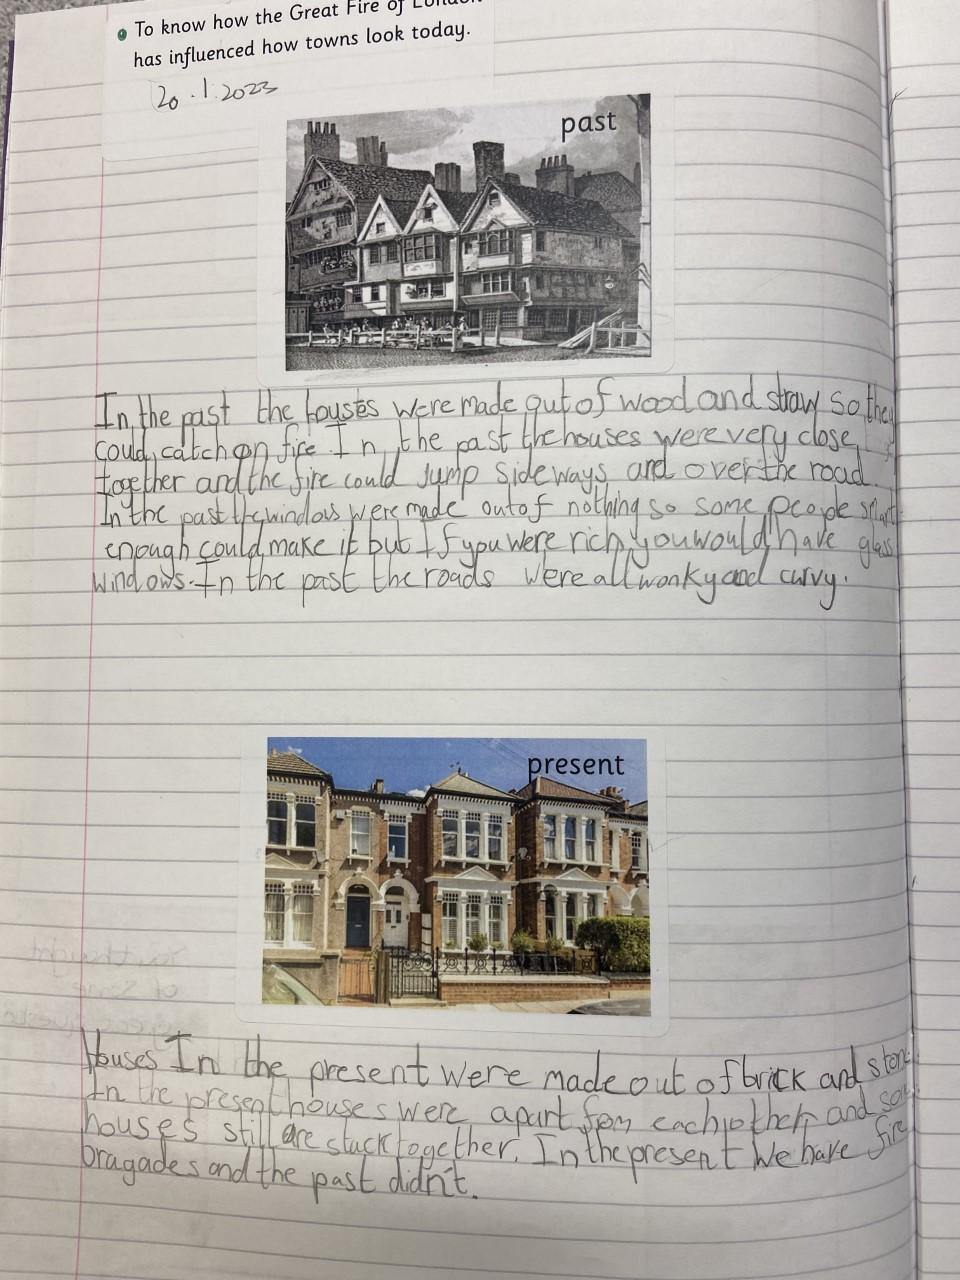 To know how the Great Fire of London
has influenced how towns look today.
20.1.2023
past
In the past the houses were made out of wood and straw so they
could catch on fire. In the past the houses were very close
together and the fire could jump sideways and over the road.
In the past the windows were made out of nothing so some people smart
enough could make it but If you were rich you would have glass
windows. In the past the roads were all wonky and curvy.
present
Houses In the present were made out of brick and stone
In the present houses were apart from each other and som
houses still are stuck together. In the present we have fire
bragades and the past didn't.